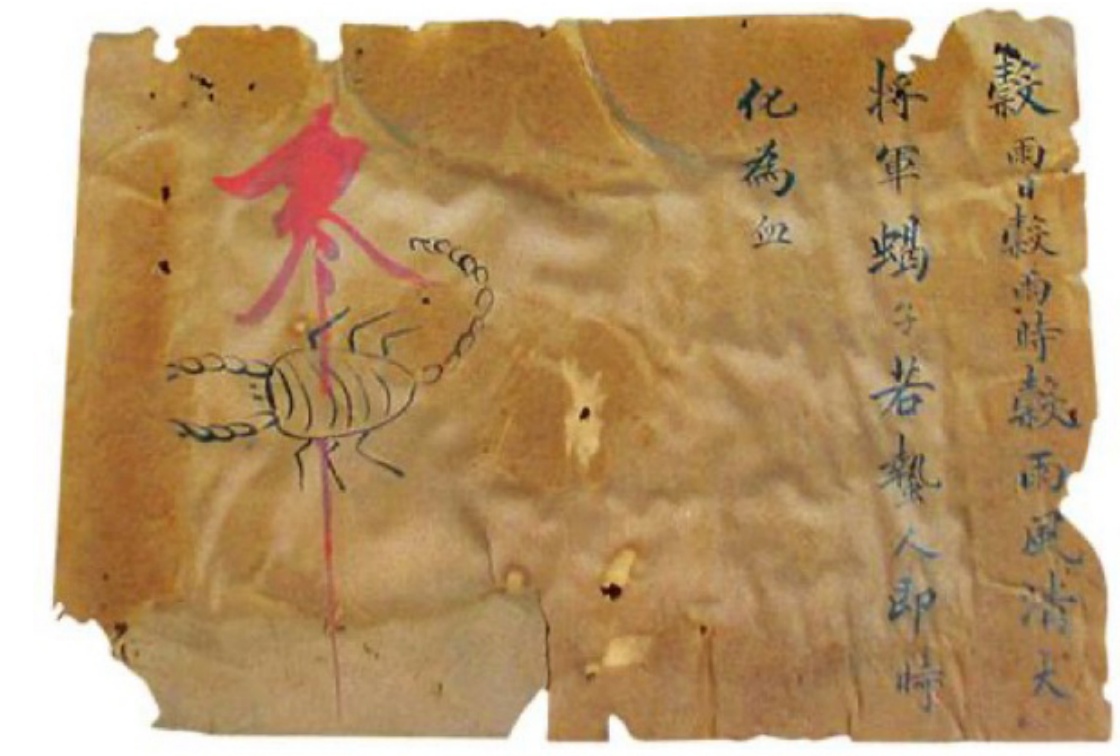 穀雨日穀雨時穀雨風清大
將軍蝎子若蟄人即時
化為血